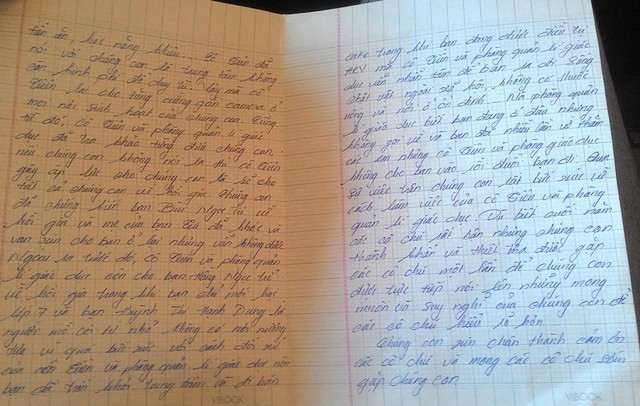 tần ăn, học năng khiếu. Cô Tiên đã
nói với chúng con là trung tâm không
còn kinh phí để duy trì. Vậy mà cô
Tiên lại cho tăng cường gắn camera ở
mọi nơi sinh hoạt của chúng con. Cũng
từ đó, cô Tiên và phòng quản lí giáo
dục đã tra khảo từng đứa chúng con,
nếu chúng con không nói ra thì cô Tiên
gây áp lực cho chúng con là sẽ cho
tất cả chúng con về hồi gia. Chúng con
đã chứng kiến bạn Bùi Ngọc Tú về
hồi gia và mẹ của bạn Tú đã khóc và
van xin cho bạn ở lại nhưng vẫn không được
Ngoài ra trước đó, cô Tiên và phòng quản
lí giáo dục còn cho bạn Hồng Ngọc tự
về hồi gia trong khi bạn chỉ mới học
lớp 7 và bạn Huỳnh Thị Hạnh Dung là
người mồ côi từ nhỏ không có nơi nương
tựa vì quá bức xúc với cách đối xử
của cô Tiên và phòng quản lí giáo dục nên
bạn đã trốn khỏi trung tâm và đi bán
trong khi bạn đang được điều trị
HIV mà cô Tiên và phòng quản lí giáo
dục vẫn nhẫn tâm để bạn ra đi sống
chật vật ngoài xã hội, không có thuốc
uống và nơi ở ổn định. Mà phòng quản
lí giáo dục biết bạn đang ở đâu nhưng
không gọi về và bạn đã nhiều lần về thăm
các em nhưng cô Tiên và phòng giáo dục
không cho bạn vào rồi đuổi bạn đi. Qua
sự việc trên chúng con rất bức xúc về
cách làm việc của cô Tiên và phòng
quản lí giáo dục. Dù biết cuối năm
các cô chú rất bận nhưng chúng con
thành khẩn và thiết tha được gặp
các cô chú một lần để chúng con
được trực tiếp nói lên những mong
muốn và suy nghĩ của chúng con để
các cô chú hiểu rõ hơn.
Chúng con xin chân thành cảm ơn
các cô chú và mong các cô chú sớm
gặp chúng con.
VIBOOK
VIBOOK